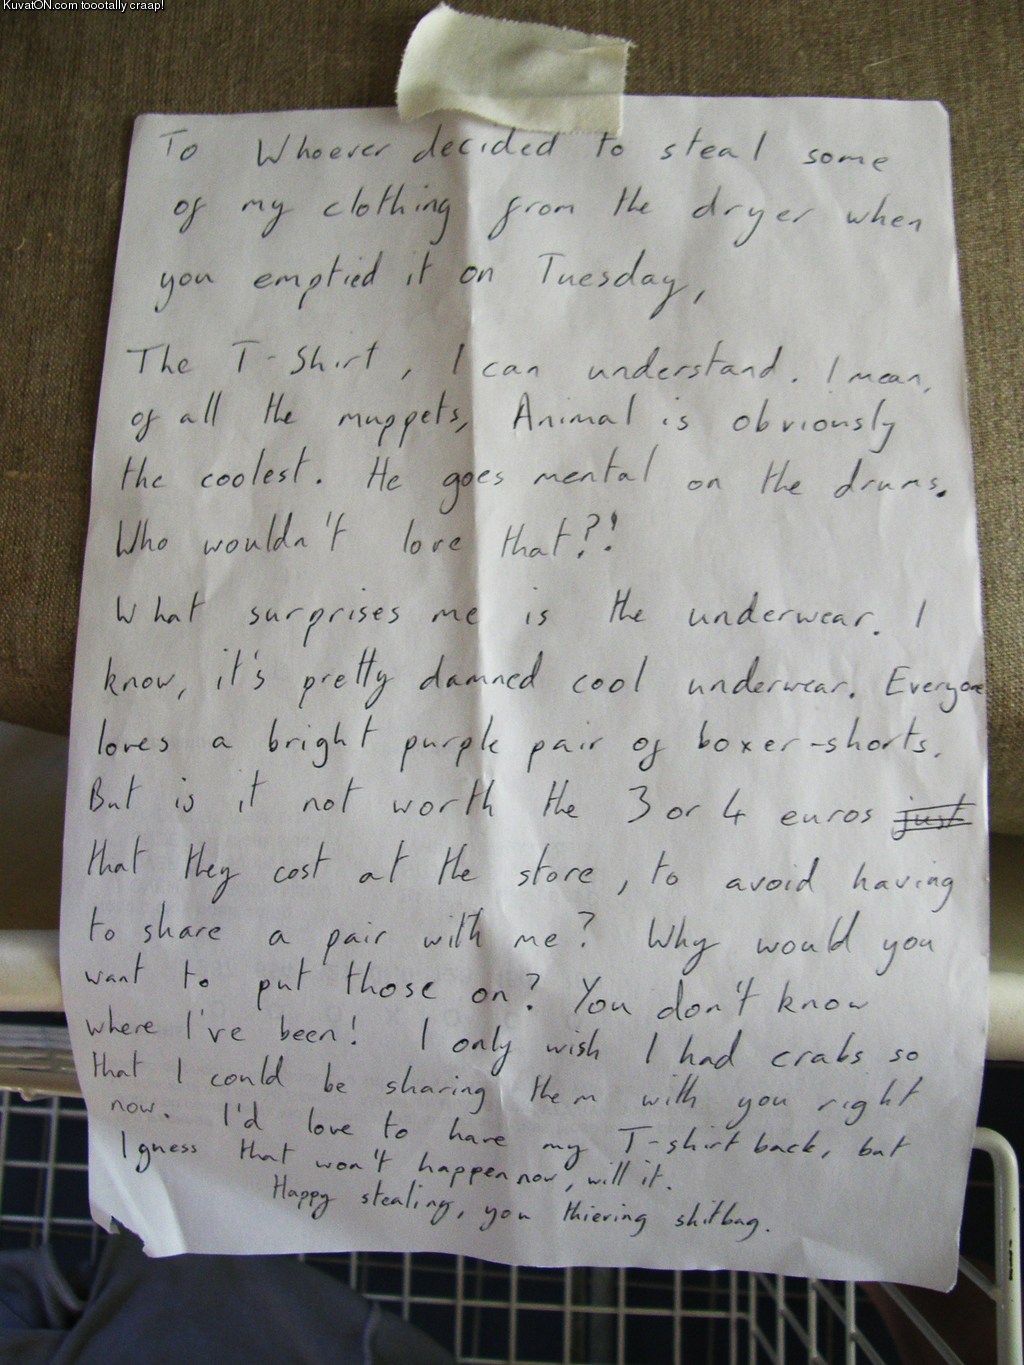 KuvatON.com toootally craap!
To Whoever decided to steal some
of my clothing from the dryer when
you emptied it on Tuesday,
The T-Shirt, I can understand. I mean,
of all the muppets, Animal is obviously
the coolest. He goes mental on the drums.
Who wouldn't love that?!
What surprises me is the underwear. I
know, it's pretty damned cool underwear. Everyone
loves a bright purple pair of boxer-shorts.
But is it not worth the 3 or 4 euros just
that they cost at the store, to avoid having
to share a pair with me? Why would you
want to put those on? You don't know
where I've been! I only wish I had crabs so
that I could be sharing them with you right
now. I'd love to have my T-shirt back, but
I guess that won't happen now, will it.
Happy stealing, you thieving shitbag.